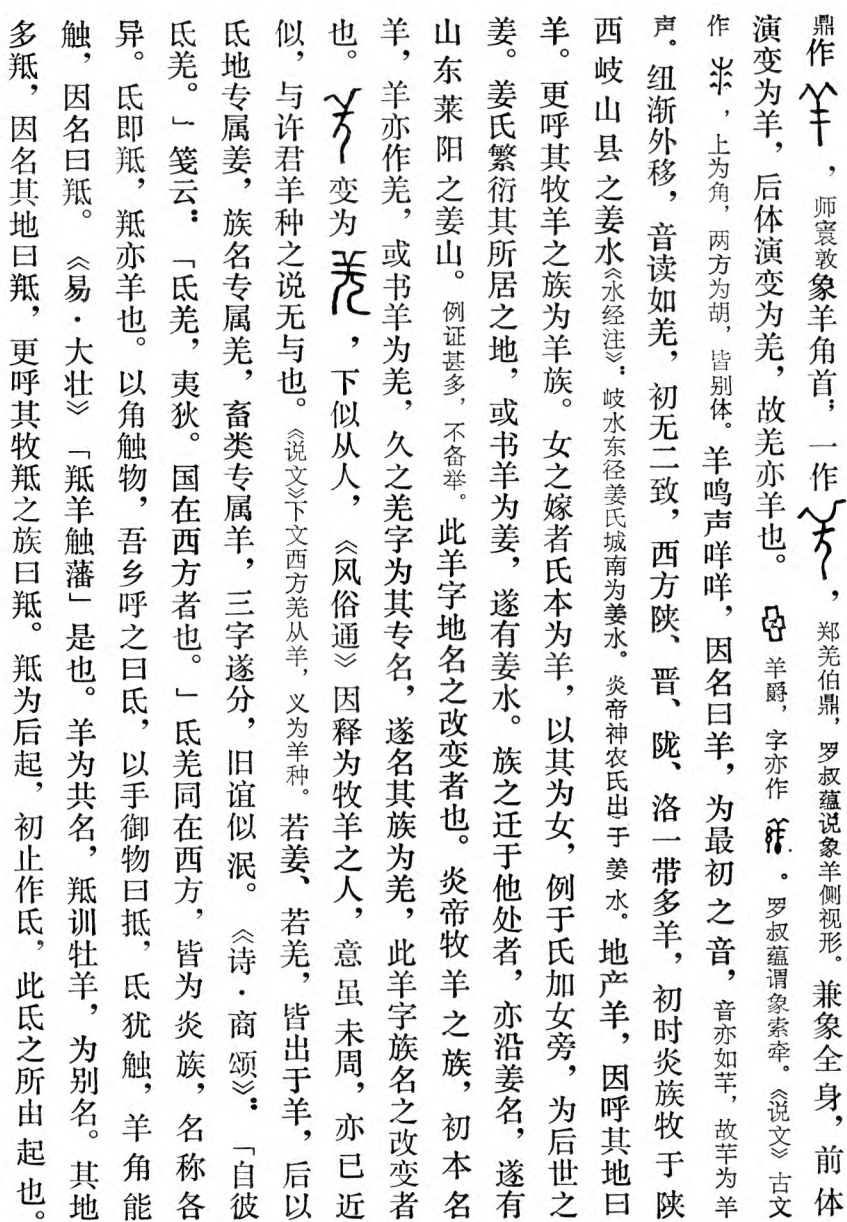 鼎作，师寰敦象羊角首；一作，郑羌伯鼎，罗叔蕴说象羊侧视形。兼象全身，前体
演变为羊，后体演变为羌，故羌亦羊也。羊爵，字亦作。罗叔蕴谓象索牵。《说文》古文
作，上为角，两方为胡，皆别体。羊鸣声咩咩，因名曰羊，为最初之音，音亦如芈，故芈为羊
声。纽渐外移，音读如羌，初无二致，西方陕、晋、陇、洛一带多羊，初时炎族牧于陕
西岐山县之姜水《水经注》：岐水东径姜氏城南为姜水。炎帝神农氏出于姜水。地产羊，因呼其地曰
羊。更呼其牧羊之族为羊族。女之嫁者氏本为羊，以其为女，例于氏加女旁，为后世之
姜。姜氏繁衍其所居之地，或书羊为姜，遂有姜水。族之迁于他处者，亦沿姜名，遂有
山东莱阳之姜山。例证甚多，不备举。此羊字地名之改变者也。炎帝牧羊之族，初本名
羊，羊亦作羌，或书羊为羌，久之羌字为其专名，遂名其族为羌，此羊字族名之改变者
也。变为，下似从人，《风俗通》因释为牧羊之人，意虽未周，亦已近
似，与许君羊种之说无与也。《说文》下文西方羌从羊，义为羊种。若姜、若羌，皆出于羊，后以
氐地专属姜，族名专属羌，畜类专属羊，三字遂分，旧谊似泯。《诗·商颂》：「自彼
氐羌。」笺云：「氐羌，夷狄。国在西方者也。」氐羌同在西方，皆为炎族，名称各
异。氐即羝，羝亦羊也。以角触物，吾乡呼之曰氐，以手御物曰抵，氐犹触，羊角能
触，因名曰羝。《易·大壮》「羝羊触藩」是也。羊为共名，羝训牡羊，为别名。其地
多羝，因名其地曰羝，更呼其牧羝之族曰羝。羝为后起，初止作氐，此氐之所由起也。